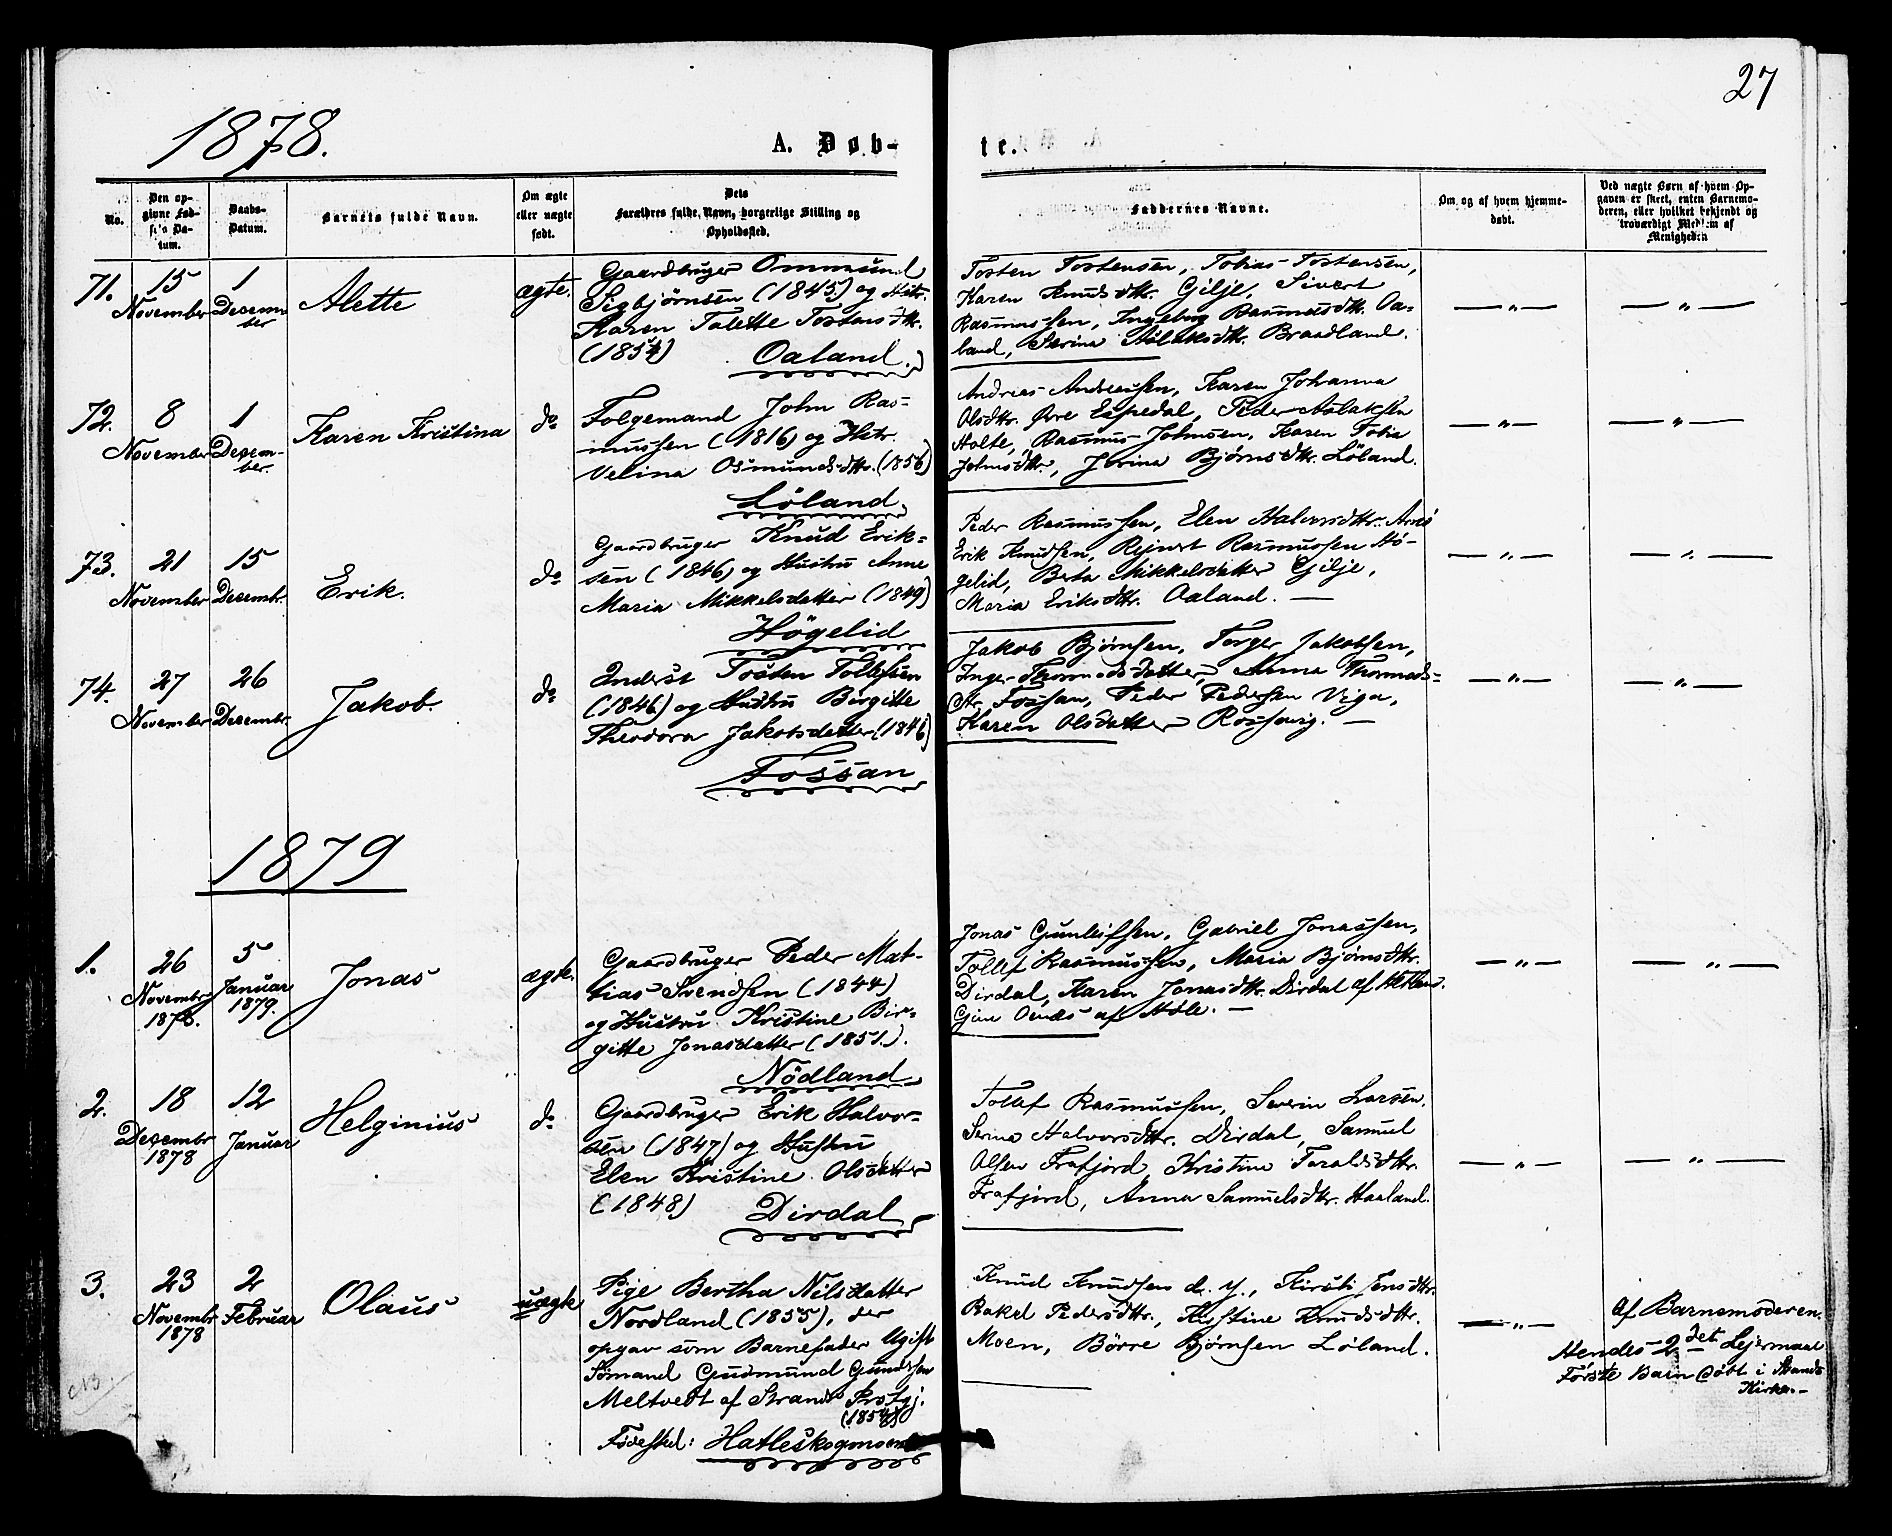 27
1878.
A. Døb-
te.
No.
Den op-
givne Fød-
sels Da-
tum.
Daabs-
Datum.
Barnets fulde Navn.
Om ægte
eller uægte
født.
Dets
Forældres fulde Navn, borgerlige Stilling og
Opholdssted.
Faddernes Navne.
Om og af hvem hjemme-
døbt.
Ved uægte Børn af hvem Op-
gaven er skeet, enten Barnemo-
deren, eller hvilket bekjendt og
troværdigt Medlem af
Menigheden
71.
15
November
1
Decem
ber
Alette
ægte.
Gaardbruger Ommund
Sigbjørnsen (1845) og Hstr.
Karen Talette Tostensdtr.
(1854) Oaland.
Tosten Tostensen, Tobias Tostensen,
Karen Knudsdtr. Gilje, Sivert
Rasmussen, Ingeborg Rasmusdtr. Oa-
land, Serina Aslaksdtr. Braadland.
— " —
— " —
72.
8
November
1
Decem-
ber.
Karen Kristina
do
Folgemand John Ras-
mussen (1816) og Hstr.
Velina Osmundsdtr. (1856)
Løland
Andreas Andreassen, Karen Johanna
Olsdtr. Øvre Espedal, Peder Aslaksen
Holte, Rasmus Johnsen, Karen Tobia
Johnsdtr., Jorina Bjørnsdtr. Løland.
— " —
— " —
73.
21
November
15
Decembr.
Erik.
do
Gaardbruger Knud Erik-
sen (1846) og Hustru Anne
Maria Mikkelsdatter (1849)
Høgelid
Peder Rasmussen, Elen Halvorsdtr.
Erik Knudsen, Rejnert Rasmussen Hø-
gelid, Berta Mikkelsdatter Gilje,
Maria Eriksdtr. Oaland. —
— " —
— " —
74.
27
November
26
Decembr.
Jakob.
do
Inderst Tosten Tollefsen
(1846) og Hustru Birgitte
Theodora Jakobsdatter (1846)
Fossan
Jakob Bjørnsen, Torger Jakobsen,
Inger Thomasdatter, Anna Thomas-
dtr. Fossan, Peder Pedersen Viga,
Karen Olsdatter Rossavig. —
— " —
— " —
1879
1.
26
Novembr
1878.
5
Januar
1879.
Jonas
ægte.
Gaardbruger Peder Mat-
tias Svendsen (1844)
og Hustru Kristine Bir-
gitte Jonasdatter (1851.).
Nödland
Jonas Gunleifsen, Gabriel Jonassen,
Tollef Rasmussen, Maria Bjørnsdtr.
Dirdal, Karen Jonasdtr. Dirdal af
af Høle. —
— " —
— " —
2.
18
Decembr
1878
12
Januar
Helginius
do
Gaardbruger Erik Halvor-
sen (1847) og Hustru
Elen Kristine Olsdatter
(1848) Dirdal
Tollef Rasmussen, Severin Larsen,
Serina Halvorsdtr. Dirdal, Samuel
Olsen Frafjord, Kristine Taraldsdtr.
Frafjord, Anna Samuelsdtr. Haaland.
— " —
— " —
3.
23
Novembr
1878
2
Februar
Olaus
uægte
Pige Bertha Nilsdatter
Nordland (1855), der
opgav som Barnefader Ugift
Sømand Gudmund Gundersen
Meltvedt af Strands Prstgj.
(1854)
Fødested: Hatleskogmoen
Knud Knudsen d. y., Kirsti Jensdtr.
Rakel Pedersdtr., Kristine Knudsdtr.
Moen, Börre Bjørnsen Løland.
— " —
af Barnemoderen.
Hendes 2det Lejermaal
Første Barn døbt i Strands
Kirke. —